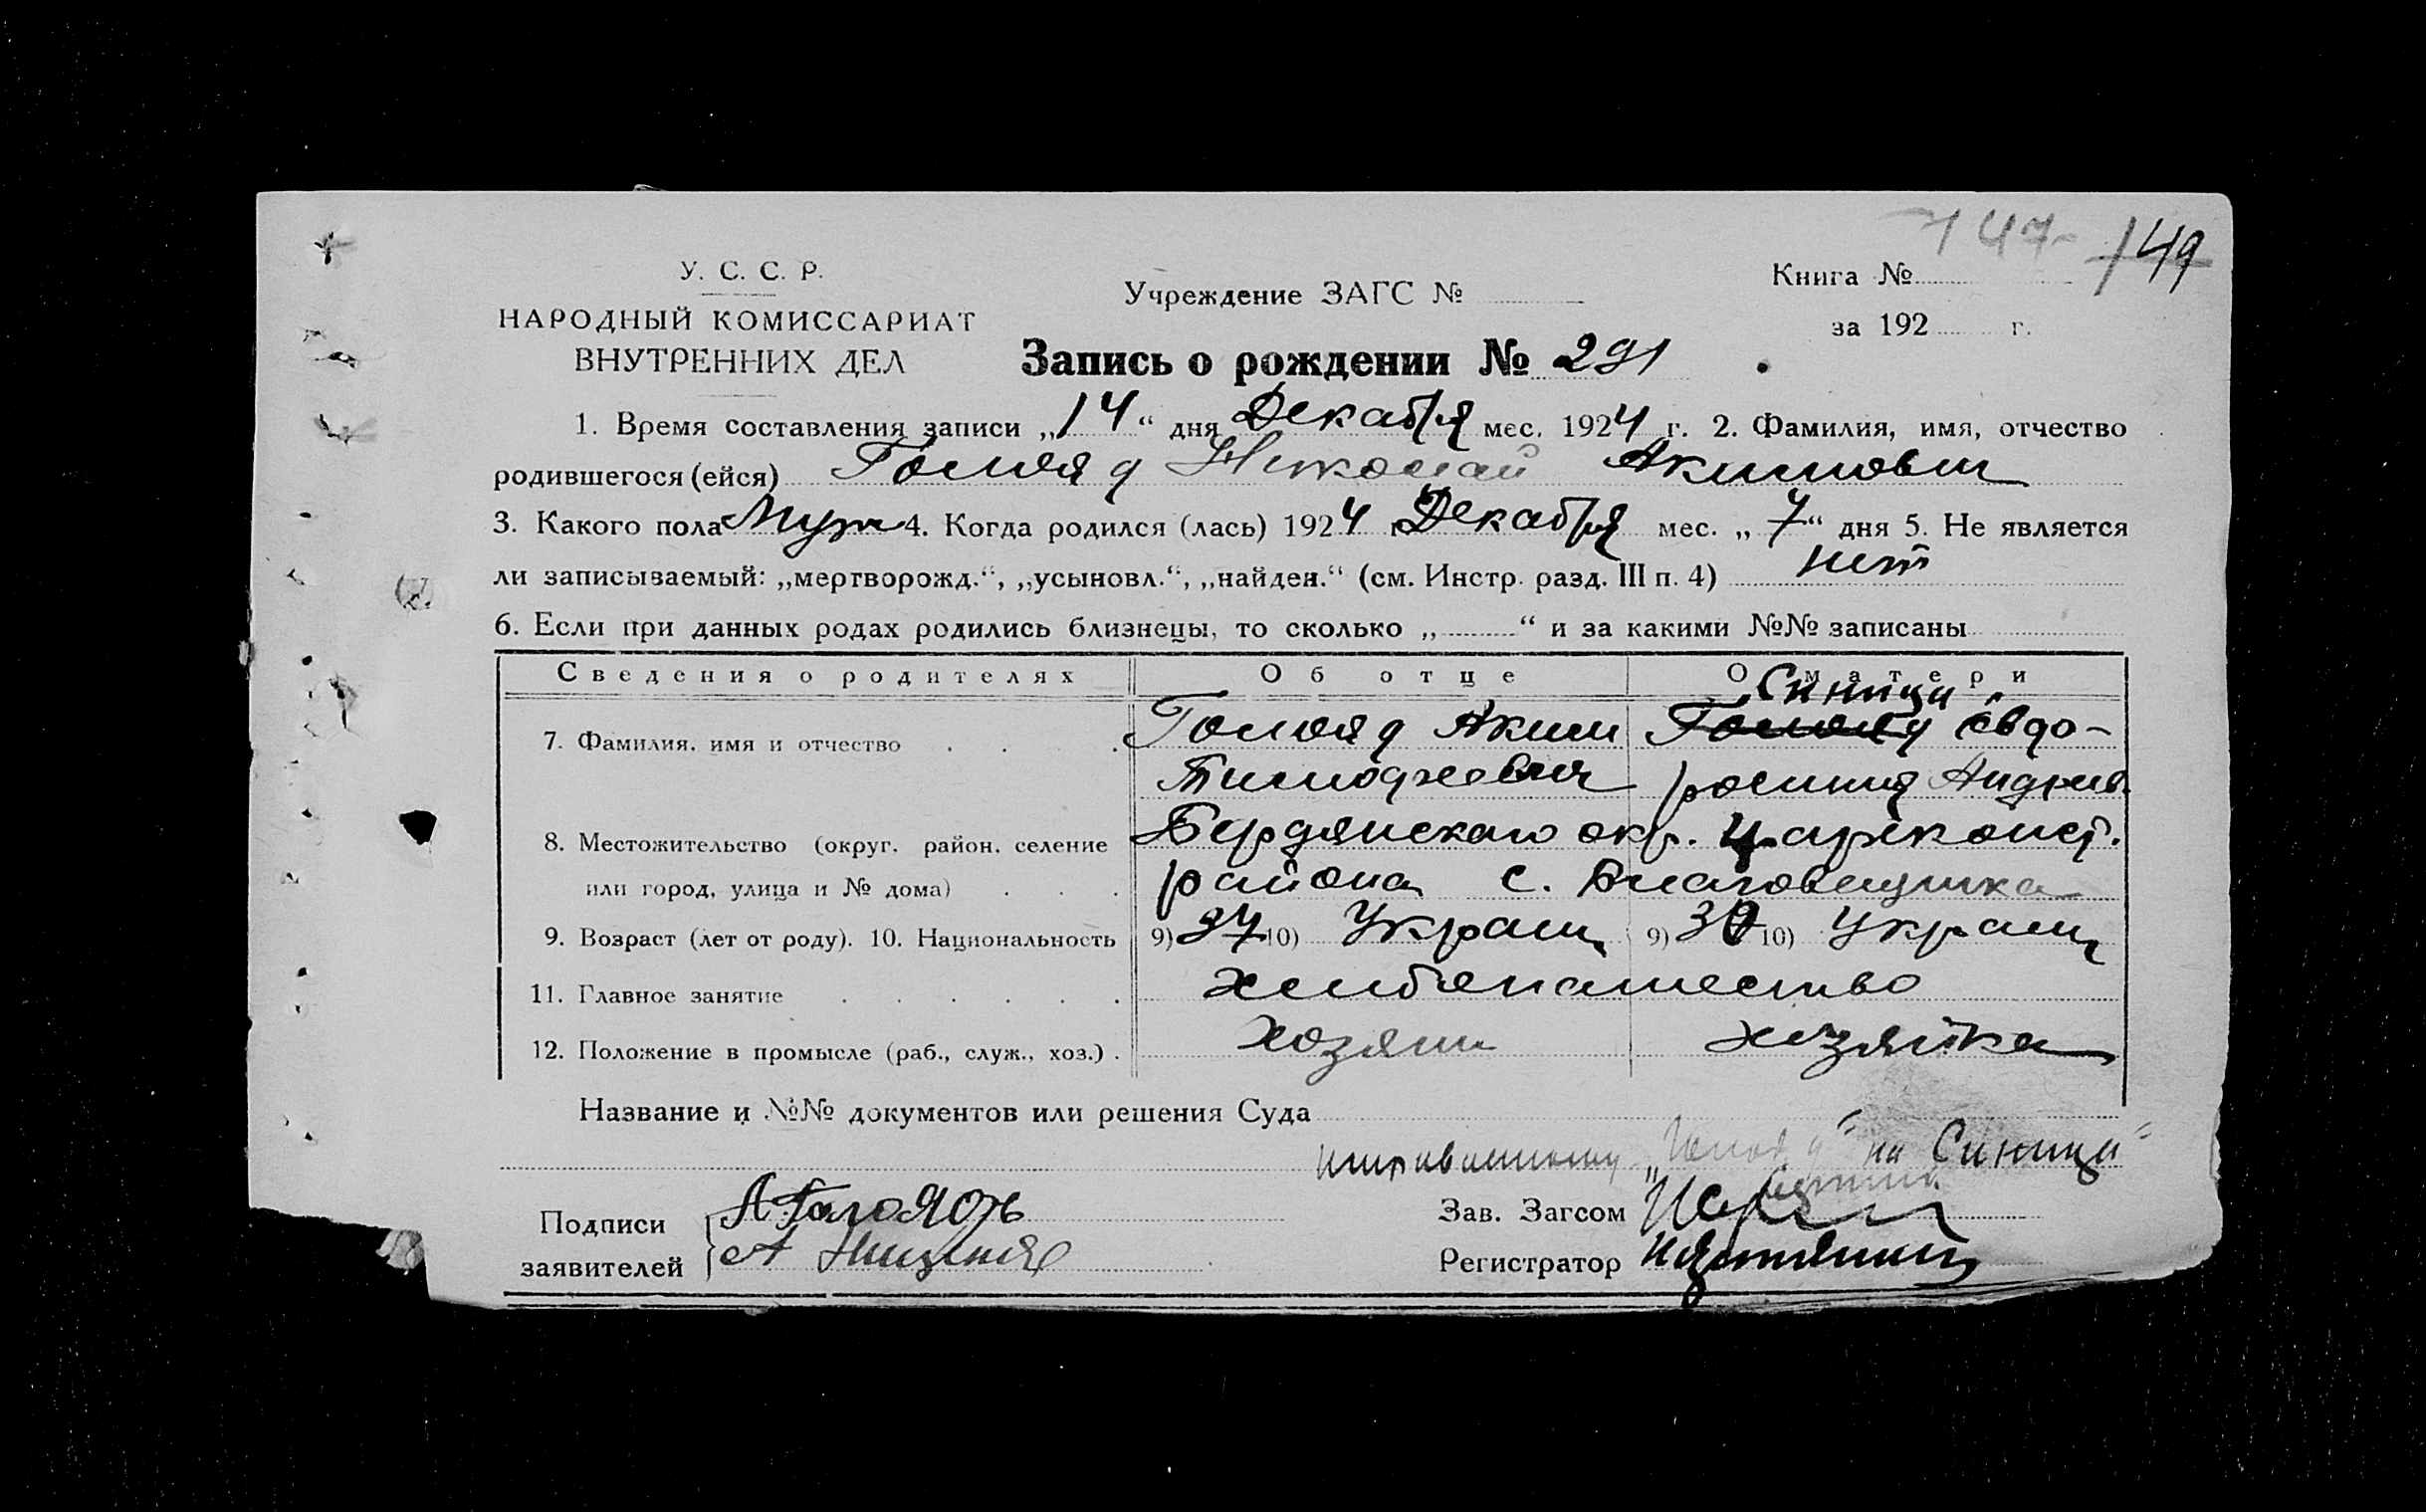 147 149
У. С. С. Р.
НАРОДНЫЙ КОМИССАРИАТ
ВНУТРЕННИХ ДЕЛ
Учреждение ЗАГС №
Книга №
за 192 г.
Запись о рождении № 291
1. Время составления записи „14“ дня Декабря мес. 1924 г. 2. Фамилия, имя, отчество
родившегося (ейся) Голояд Николай Акимович
3. Какого пола Муж 4. Когда родился (лась) 1924 г. Декабря мес. „7“ дня 5. Не является
ли записываемый: „мертворожд.“, „усыновл.“, „найден.“ (см. Инстр. разд. III п. 4) нет
6. Если при данных родах родились близнецы, то сколько „ “ и за какими №№ записаны
Сведения о родителях Об отце О матери
Синица
7. Фамилия, имя и отчество Голояд Аким Голояд Евдо-
Тимофеевич Андреев.
8. Местожительство (округ, район, селение Бердянского окр. Царёконст.
или город, улица и № дома) района с. Благовещенка
9. Возраст (лет от роду). 10. Национальность 9) 37 10) Украин 9) 10) Украин
11. Главное занятие хлебопашество
12. Положение в промысле (раб., служ., хоз.) хозяин хозяйка
Название и №№ документов или решения Суда
„Голояд“ на Синица“
Подписи А Голоядъ Зав. Загсом
заявителей А Регистратор